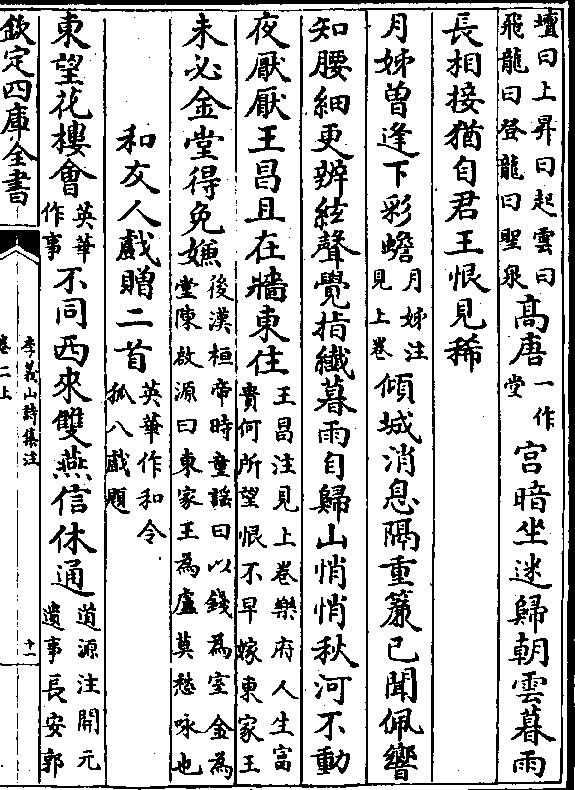 壇曰上昇曰起雲曰
飛龍曰登龍曰聖泉
高唐
一作
堂
宮暗坐迷歸朝雲暮雨
長相接猶自君王恨見稀
月姊曾逢下彩蟾
月姊注
見上卷
傾城消息隔重簾已聞佩響
知腰細更辨絃聲覺指纖暮雨自歸山悄悄秋河不動
夜厭厭王昌且在牆東住
王昌注見上卷樂府人生富
貴何所望恨不早嫁東家王
未必金堂得免嫌
後漢桓帝時童謡曰以錢為室金為
堂陳啟源曰東家王為盧莫愁咏也
和友人戲贈二首
英華作和令
狐八戲題
東望花樓會
英華
作事
不同西來雙燕信休通
道源注開元
遺事長安郭
欽定四庫全書
李義山詩集注
卷二上
十一